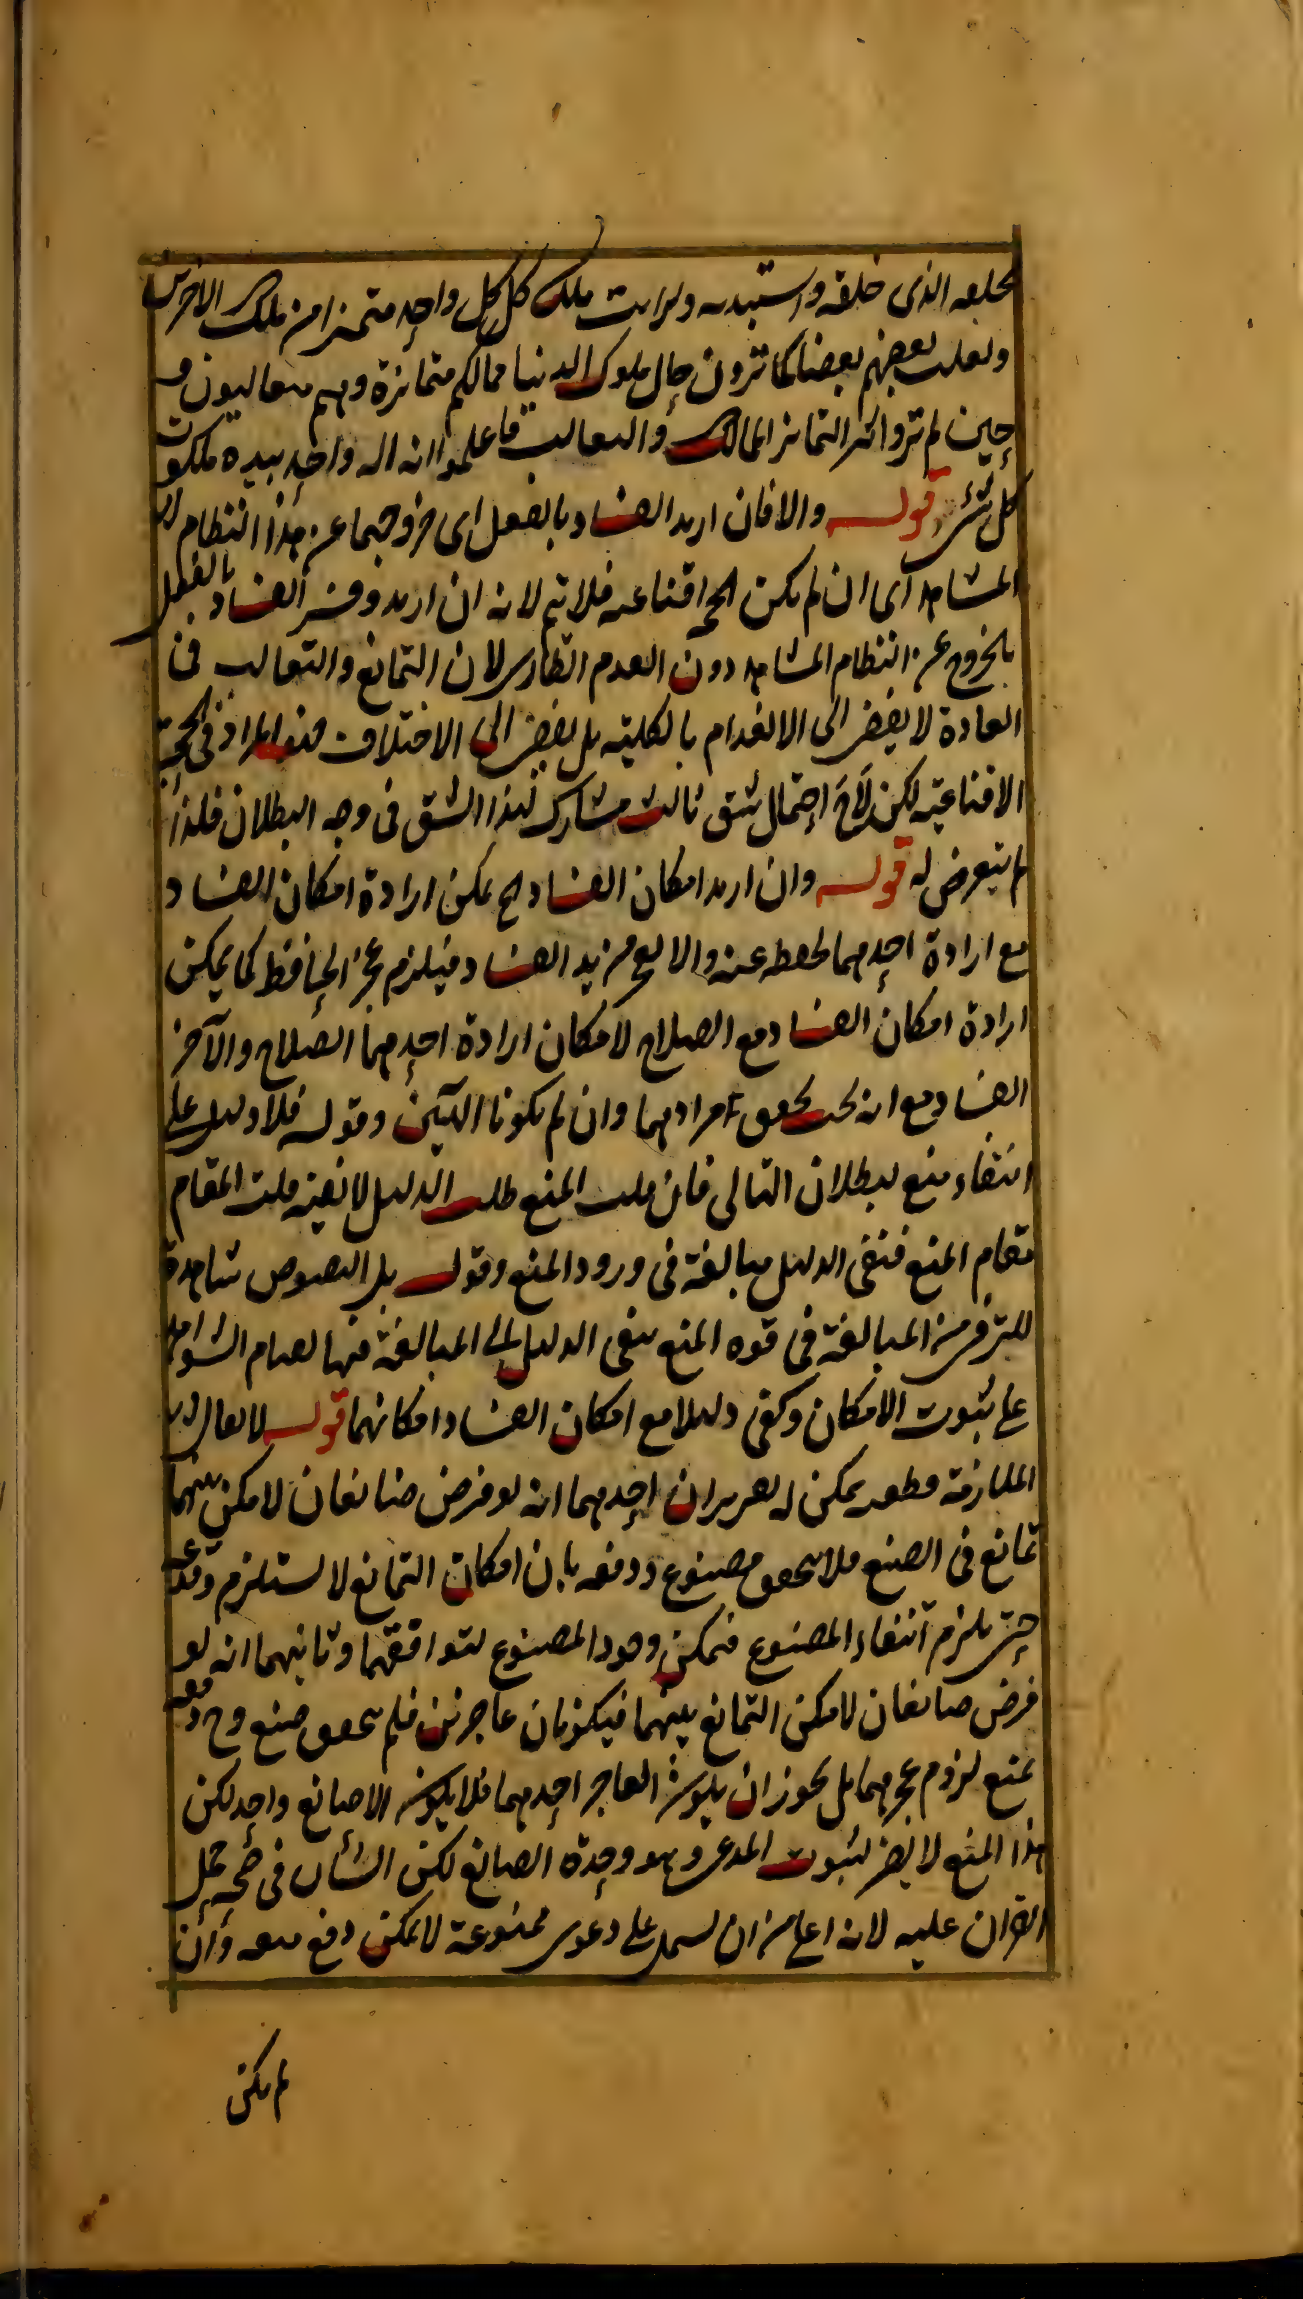 بخلقه الذى خلقه واستبد به ولرايت ملك كل كل واحد متميزا من ملك الاخرين
ولغلب بعضهم بعضا كما ترون حال ملوك الدنيا ممالكهم متمايزة وهم متغالبون و
حين لم تروا اثر التمايز الممالك والتغالب فاعلموا انه اله واحد بيده ملكوت
كل شئ قوله والا فان اريد الفساد بالفعل اى خروجهما عن هذا النظام
المشاهد اى ان لم يكن الحجة اقناعية فلا يتم لانه ان اريد وفسر الفساد بالفعل
بالخروج عن النظام المشاهد دون العدم الطارى لان التمانع والتغالب فى
العادة لا يفضى الى الانعدام بالكلية بل يفضى الى الاختلاف فهو المراد فى الحجة
الاقناعية لكن لاح احتمال شق ثالث مشارك لهذا الشق فى وجه البطلان فلذا
لم يتعرض له قوله وان اريد امكان الفساد اه يمكن ارادة امكان الفساد
مع ارادة احدهما لحفظه عنه والا لوقع مزيد الفساد فيلزم عجز الحافظ كما يمكن
ارادة امكان الفساد مع الصلاح لامكان ارادة احدهما الصلاح والآخر
الفساد مع انه يجب تحقق مرادهما وان لم يكونا الهين وقوله فلا دليل على
انتفاءه منع لبطلان التالى فان قلت المنع طلب الدليل لا نفيه قلت المقام
مقام المنع فنفى الدليل مبالغة فى ورود المنع وقوله بل النصوص شاهدة
للترقى من المبالغة فى قوة المنع بنفى الدليل الى المبالغة فيها لقيام الشواهد
على ثبوت الامكان وكفى دليلا مع امكان الفساد امكانهما قوله لا يقال
الملازمة قطعية يمكن له تقريران احدهما انه لو فرض صانعان لامكن بينهما
تمانع فى الصنع فلا يتحقق مصنوع ودفعه بان امكان التمانع لا يستلزم وقوعه
حتى يلزم انتفاء المصنوع فيمكن وجود المصنوع لتوافقهما وثانيهما انه لو
فرض صانعان لامكن التمانع بينهما فيكونان عاجزين فلم يتحقق صنع وح دفعه
بمنع لزوم عجزهما بل يجوز ان يكون العاجز احدهما فلا يكون الا صانع واحد لكن
هذا المنع لا يضر لثبوت المدعى وهو وحدة الصانع لكن الشان فى صحة حمل
القران عليه لانه اعلى من ان يشتمل على دعوى ممنوعة لا يمكن دفع منعه وان
لم يكن